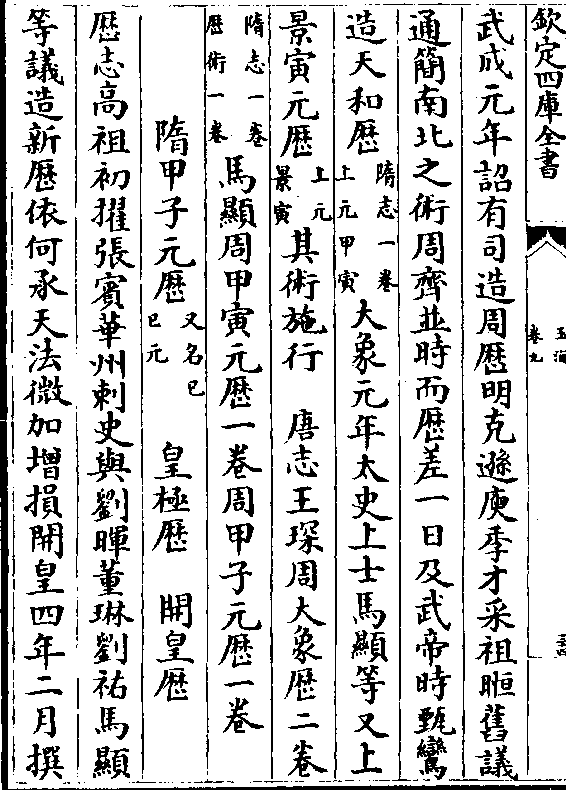 欽定四庫全書
玉海
卷九
武成元年詔有司造周歴明克遜庾季才采祖暅舊議
通簡南北之術周齊並時而歴差一日及武帝時甄鸞
造天和歴隋志一卷上元甲寅大象元年太史上士馬顯等又上
景寅元歴上元景寅其術施行 唐志王琛周大象歴二卷
隋志一卷歴術一卷馬顯周甲寅元歴一卷周甲子元歴一卷
隋甲子元歴又名巳巳元 皇極歴 開皇歴
歴志高祖初擢張賓華州刺史與劉暉董琳劉祐馬顯
等議造新歴依何承天法微加增損開皇四年二月撰